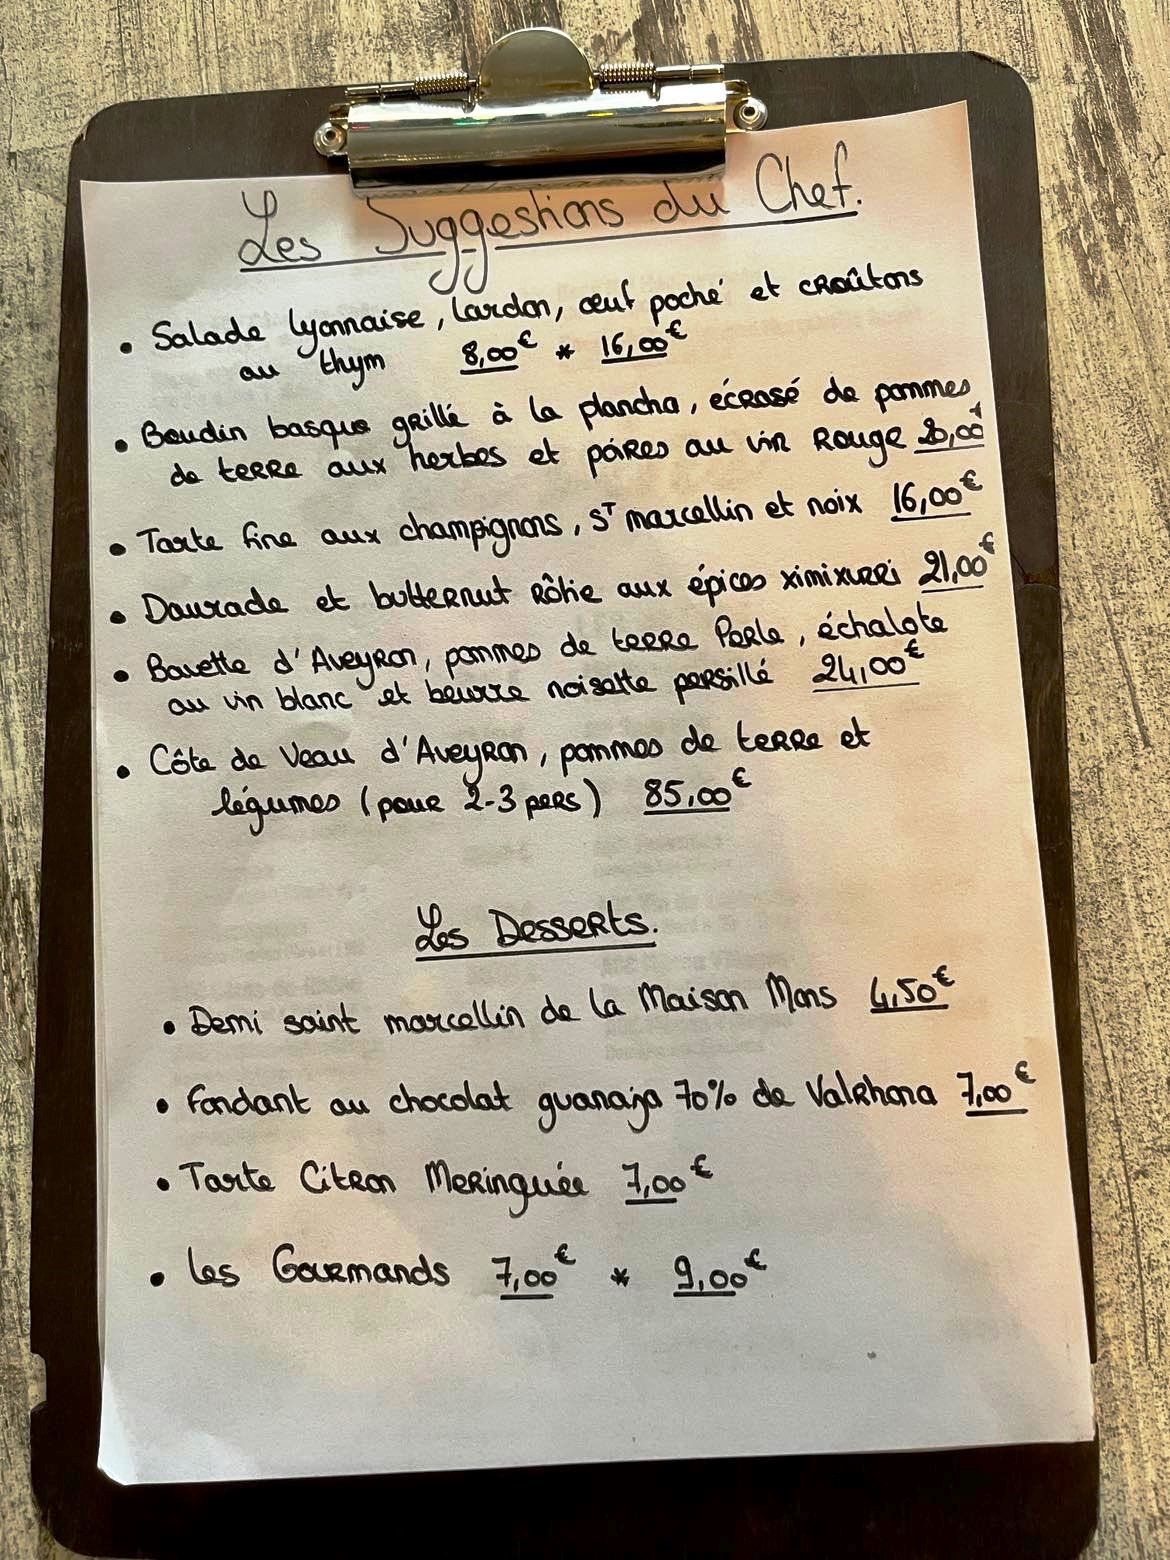 Les Suggestions du Chef.
• Salade lyonnaise, lardon, œuf poché et croûtons
au thym 8,00€ * 16,00€
• Boudin basque grillé à la plancha, écrasé de pommes
de terre aux herbes et poires au vin rouge 20,00€
• Tarte fine aux champignons, St marcellin et noix 16,00€
• Daurade et butternut rôtie aux épices ximixurri 21,00€
• Bavette d'Aveyron, pommes de terre Perle, échalote
au vin blanc et beurre noisette persillé 24,00€
• Côte de Veau d'Aveyron, pommes de terre et
légumes (pour 2-3 pers) 85,00€
Les Desserts.
• Demi saint marcellin de la Maison Mons 4,50€
• Fondant au chocolat guanaja 70% de Valrhona 7,00€
• Tarte Citron Meringuée 7,00€
• Les Gourmands 7,00€ * 9,00€